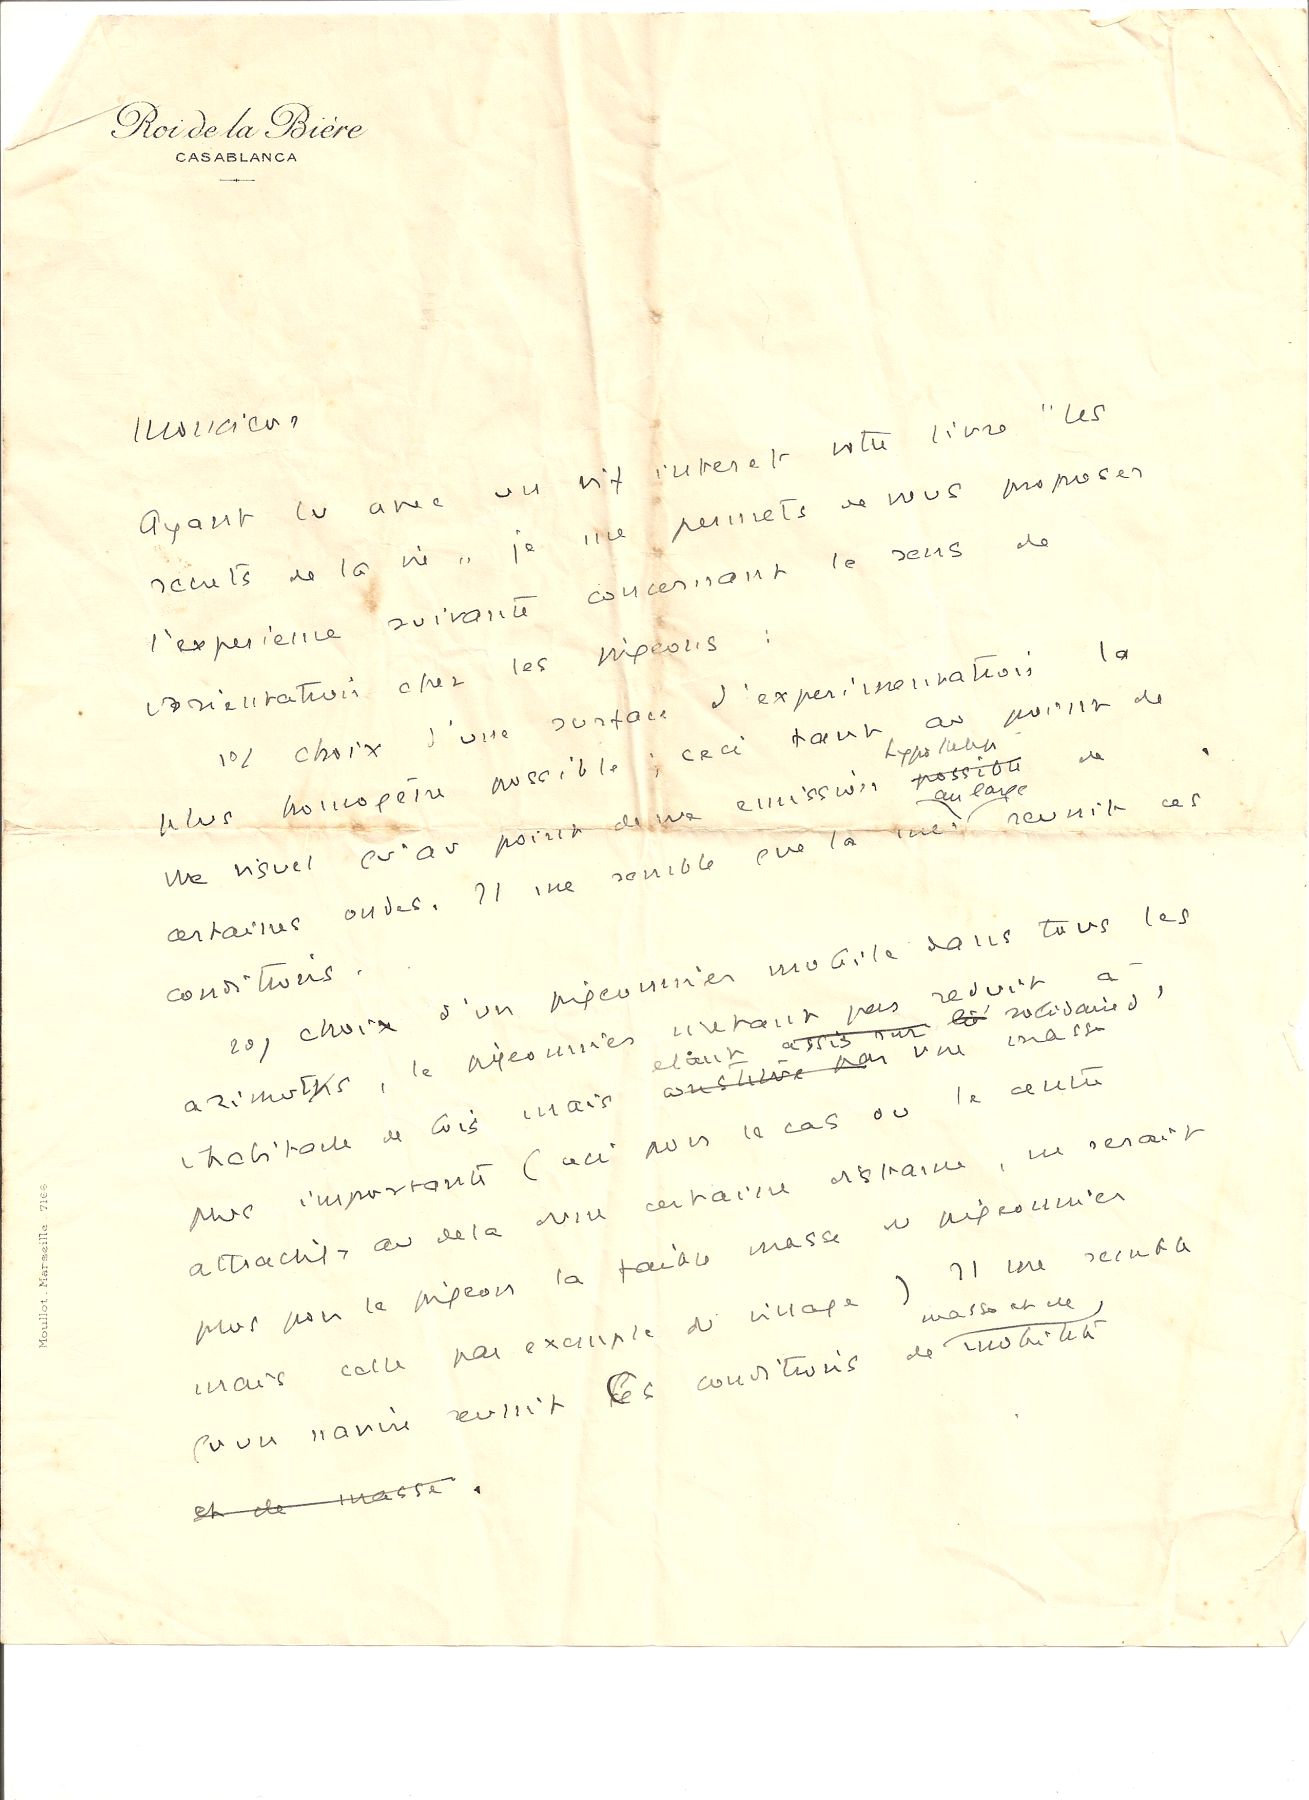 Roi de la Bière
CASABLANCA
Monsieur
Ayant lu avec un vif interet votre livre "les
secrets de la vie" je me permets de vous proposer
l'experience suivante concernant le sens de
l'orientation chez les pigeons :
1°/ choix d'une surface d'experimentation la
plus homogène possible ; ceci tant au point de
vue visuel qu'au point de vue emission possible hypothetique de
certaines ondes. Il me semble que la mer au large reunit ces
conditions.
2°/ choix d'un pigeonnier mobile dans tous les
azimuths, le pigeonnier n'etant pas reduit à
l'habitacle de bois mais constitué par etant assis sur solidaire d'une masse
plus importante (ceci pour le cas ou le centre
attractif, au dela d'une certaine distance, ne serait
plus pour le pigeon la faible masse du pigeonnier
mais celle par exemple du village) Il me semble
qu'un navire reunit ces conditions de masse et de mobilité
et de masse.
Moullot. Marseille 7166